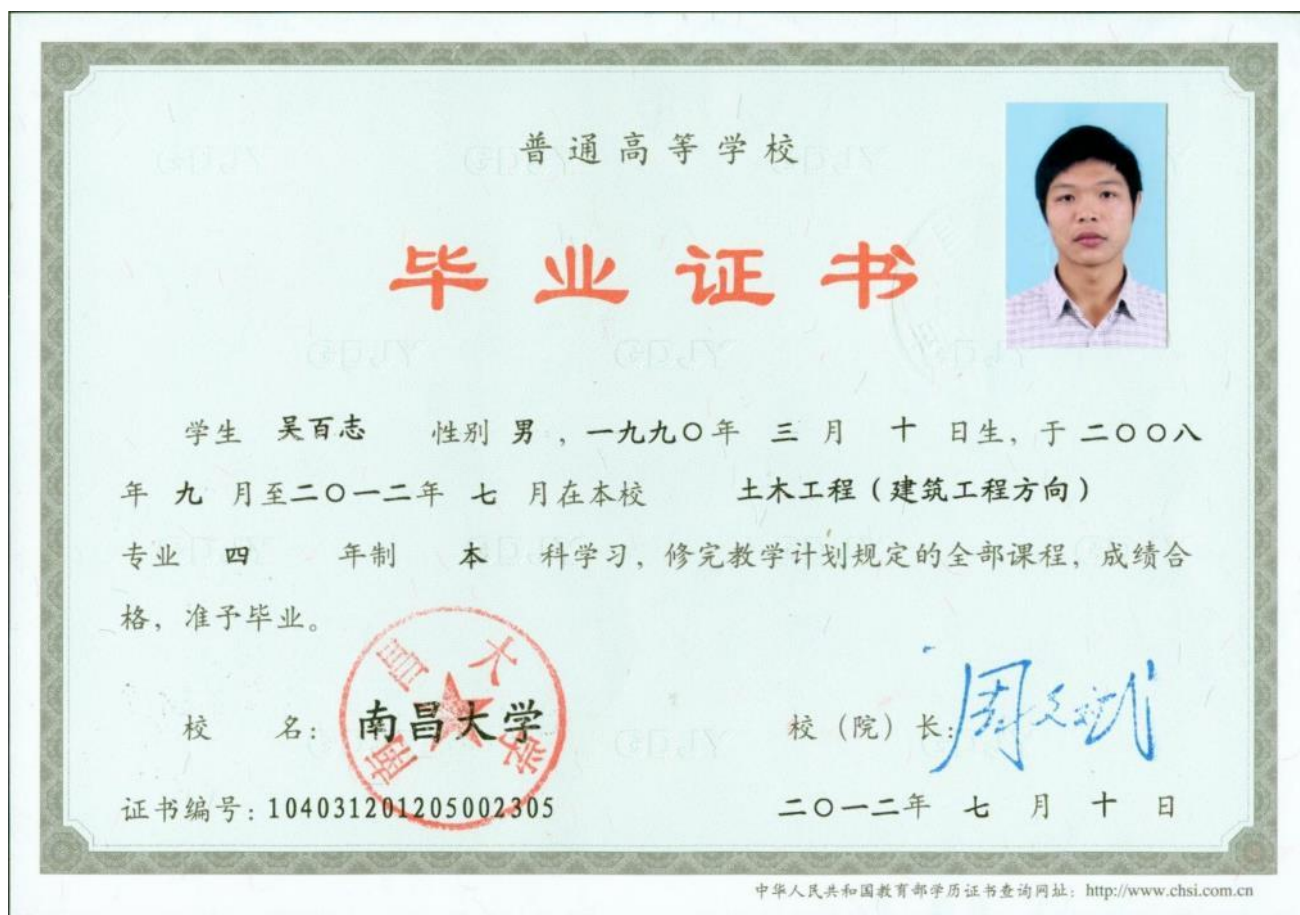 普通高等学校
毕业证书
学生 吴百志 性别 男 , 一九九〇年 三 月 十 日生, 于 二〇〇八
年 九 月至二〇一二年 七 月在本校 土木工程（建筑工程方向）
专业 四 年制 本 科学习, 修完教学计划规定的全部课程, 成绩合
格, 准予毕业。
南昌大学
校 名: 南昌大学 校（院）长: 周文斌
证书编号: 104031201205002305 二〇一二年 七 月 十 日
中华人民共和国教育部学历证书查询网址: http://www.chsi.com.cn